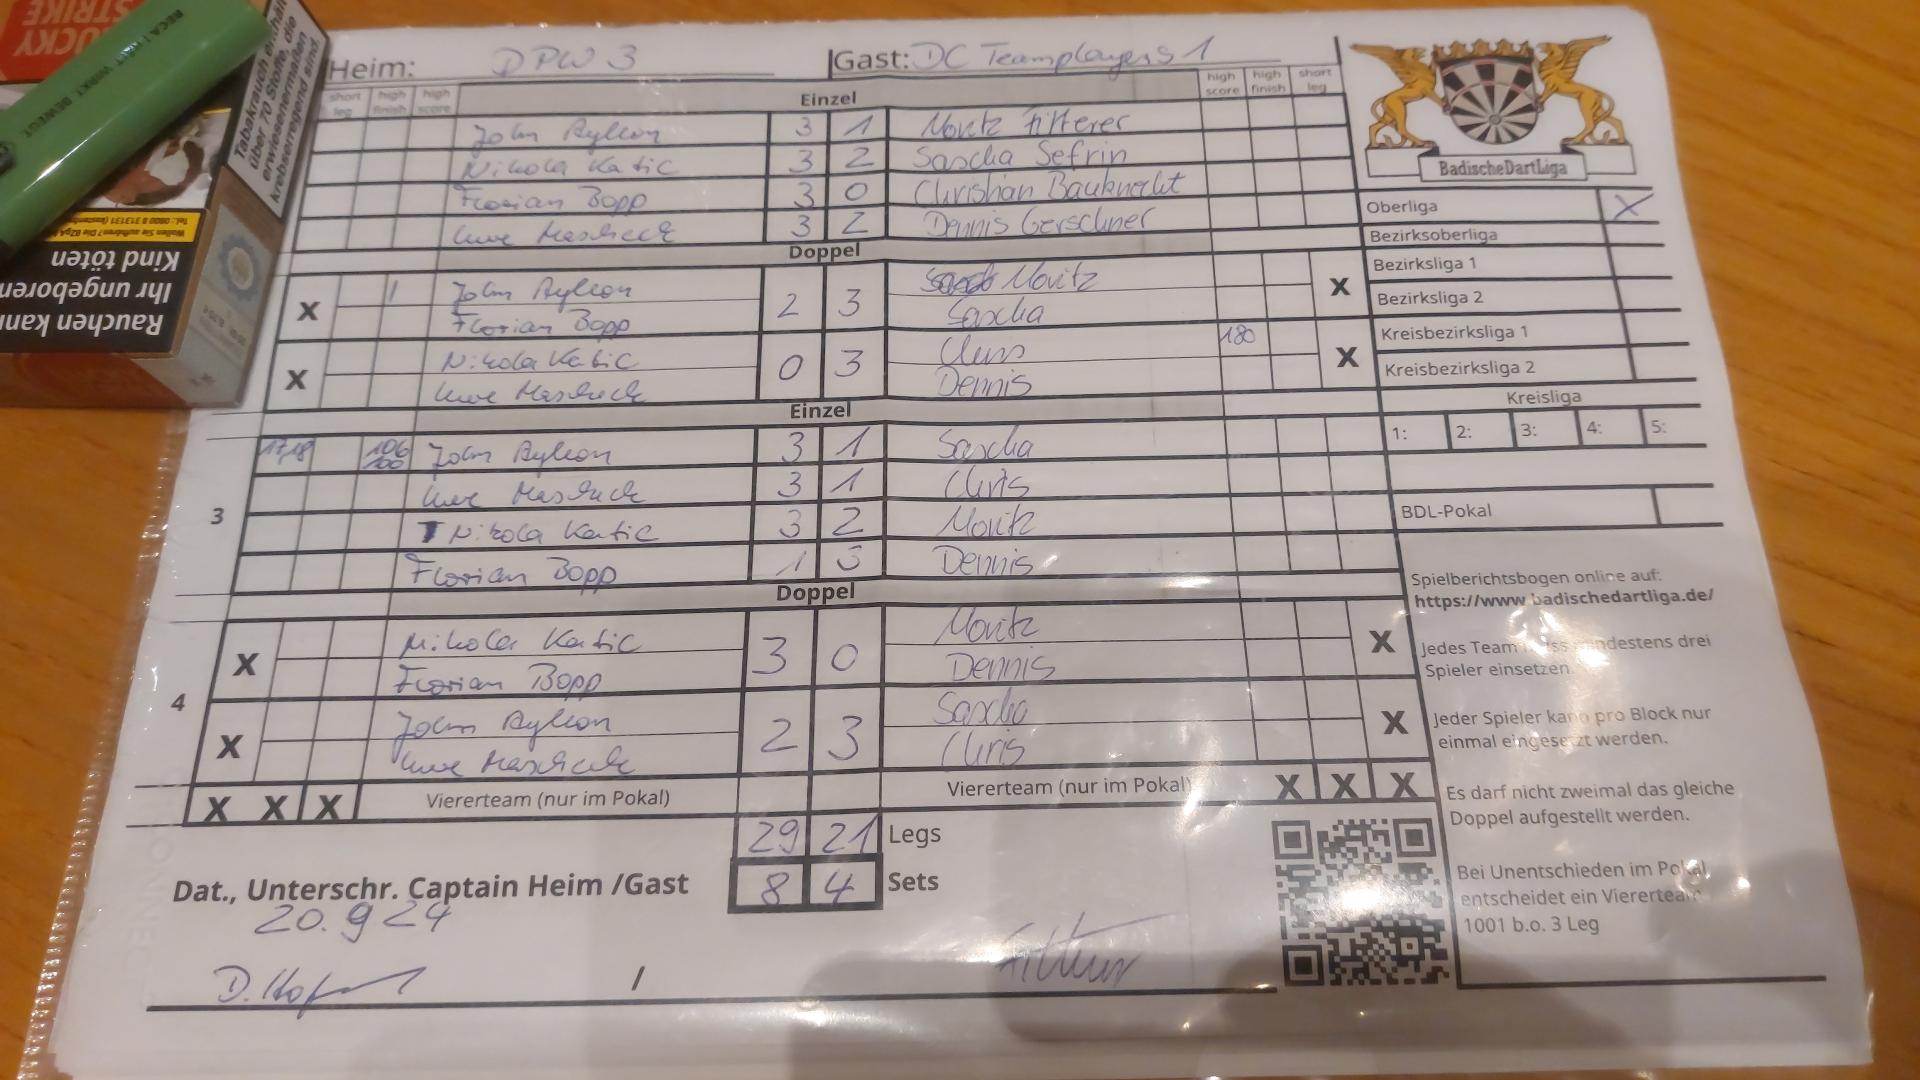 Heim: DPW 3 Gast: DC Teamplayers 1
short leg high finish high score Einzel high score high finish short leg
John Rylon 3 1 Moritz Fitterer
Nikola Katic 3 2 Sascha Sefrin
Florian Bopp 3 0 Christian Bauknecht
Uwe Mascheck 3 2 Dennis Gerschner
Doppel
X John Rylon 2 3 Moritz X
Florian Bopp Sascha
X Nikola Katic 0 3 Chris 180 X
Uwe Mascheck Dennis
Einzel
3
17,18 106 100 John Rylon 3 1 Sascha
Uwe Mascheck 3 1 Chris
Nikola Katic 3 2 Moritz
Florian Bopp 1 3 Dennis
Doppel
4
X Nikola Katic 3 0 Moritz X
Florian Bopp Dennis
X John Rylon 2 3 Sascha X
Uwe Mascheck Chris
X X X Viererteam (nur im Pokal) Viererteam (nur im Pokal) X X X
29 21 Legs
8 4 Sets
Dat., Unterschr. Captain Heim /Gast
20.9 24
/
BadischeDartLiga
Oberliga X
Bezirksoberliga
Bezirksliga 1
Bezirksliga 2
Kreisbezirksliga 1
Kreisbezirksliga 2
Kreisliga
1: 2: 3: 4: 5:
BDL-Pokal
Spielberichtsbogen online auf:
https://www.badischedartliga.de/
Jedes Team muss mindestens drei
Spieler einsetzen.
Jeder Spieler kann pro Block nur
einmal eingesetzt werden.
Es darf nicht zweimal das gleiche
Doppel aufgestellt werden.
Bei Unentschieden im Pokal
entscheidet ein Viererteam
1001 b.o. 3 Leg
LUCKY
STRIKE
Tabakrauch enthält
über 70 Stoffe, die
erwiesenermaßen
krebserregend sind.
Rauchen kann
Ihr ungeborenes
Kind töten